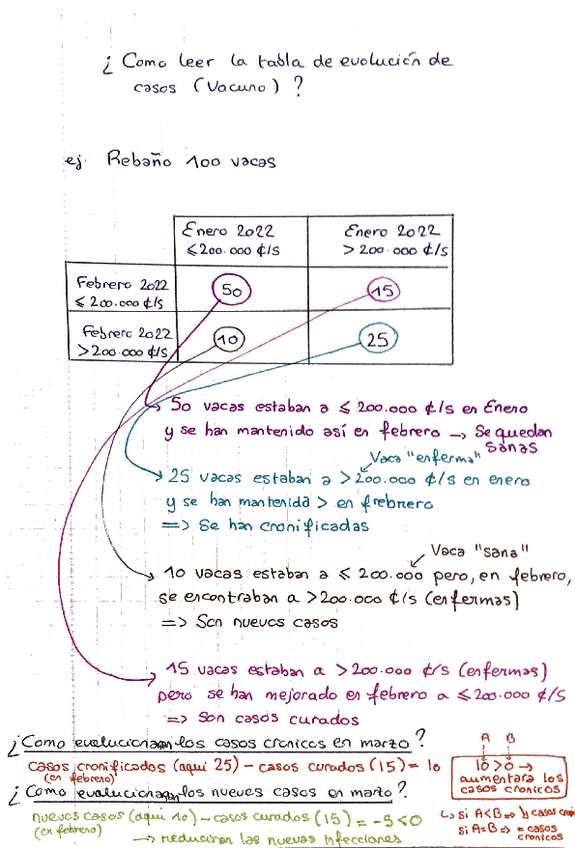 ¿ Como leer la tabla de evolución de
casos (Vacuno) ?
ej. Rebaño 100 vacas
Enero 2022
≤200.000 ¢/s
Enero 2022
>200.000 ¢/s
Febrero 2022
≤ 200.000 ¢/s
50
15
Febrero 2022
>200.000 ¢/s
10
25
50 vacas estaban a ≤ 200.000 ¢/s en Enero
y se han mantenido así en febrero → Se quedan
sanas
Vaca "enferma"
25 vacas estaban a >200.000 ¢/s en enero
y se han mantenida > en frebrero
=> Se han cronificadas
Vaca "sana"
10 vacas estaban a ≤ 200.000 pero, en febrero,
se encontraban a >200.000 ¢/s (enfermas)
=> Son nuevos casos
15 vacas estaban a >200.000 ¢/s (enfermas)
pero se han mejorado en febrero a ≤200.000 ¢/s
=> Son casos curados
¿Como evolucionaran los casos cronicos en marzo ?
A B
casos cronificados (aqui 25) – casos curados (15) = 10
(en febrero)
10 > 0 →
aumentara los
casos cronicos
¿ Como evolucionaran los nuevos casos en marzo ?
nuevos casos (aqui 10) – casos curados (15) = -5 <0
(en febrero)
→ reduciran las nuevas infecciones
↳ si A<B => ↘ casos
si A=B => = casos
cronicos